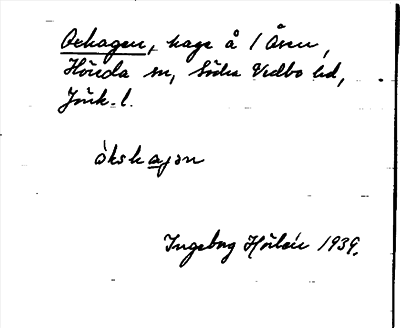 Oxhagen, hage å 1 Åsen,
Hörda sn, Södra Vedbo hd,
Jönk. l.
òkshagan
Ingeborg Hörlén 1939.